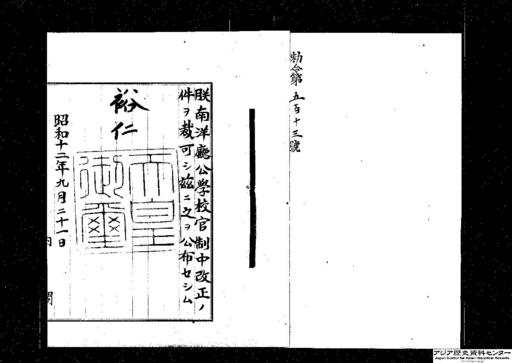 勅令第五百十三號
朕南洋廳公學校官制中改正ノ
件ヲ裁可シ茲ニ之ヲ公布セシム
裕仁
天皇御璽
昭和十二年九月二十一日
アジア歴史資料センター
Japan Center for Asian Historical Records